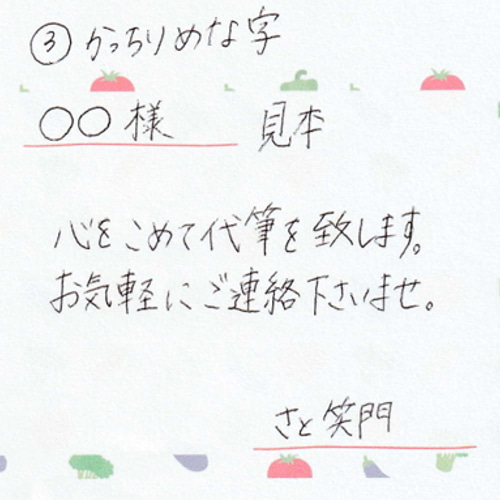 ③かっちりめな字
○○様 見本
心をこめて代筆を致します。
お気軽にご連絡下さいませ。
さと笑門